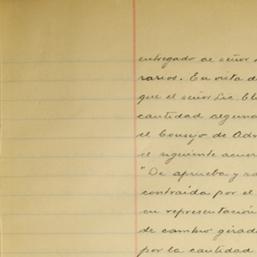 entregado al señor
rarios. En vista d
que el señor Lic. El
cantidad alguna
el Consejo de Adm
el siguiente acuer
"De aprueba y ra
contraida por el
en representación
de cambio girad
por la cantidad